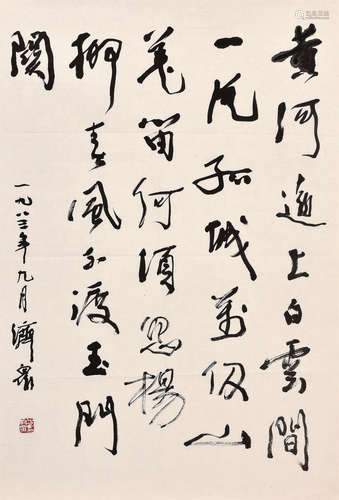 黄河遠上白雲間
一片孤城萬仞山
羌笛何須怨楊
柳春風不渡玉門
關
一九八三年九月濟衆